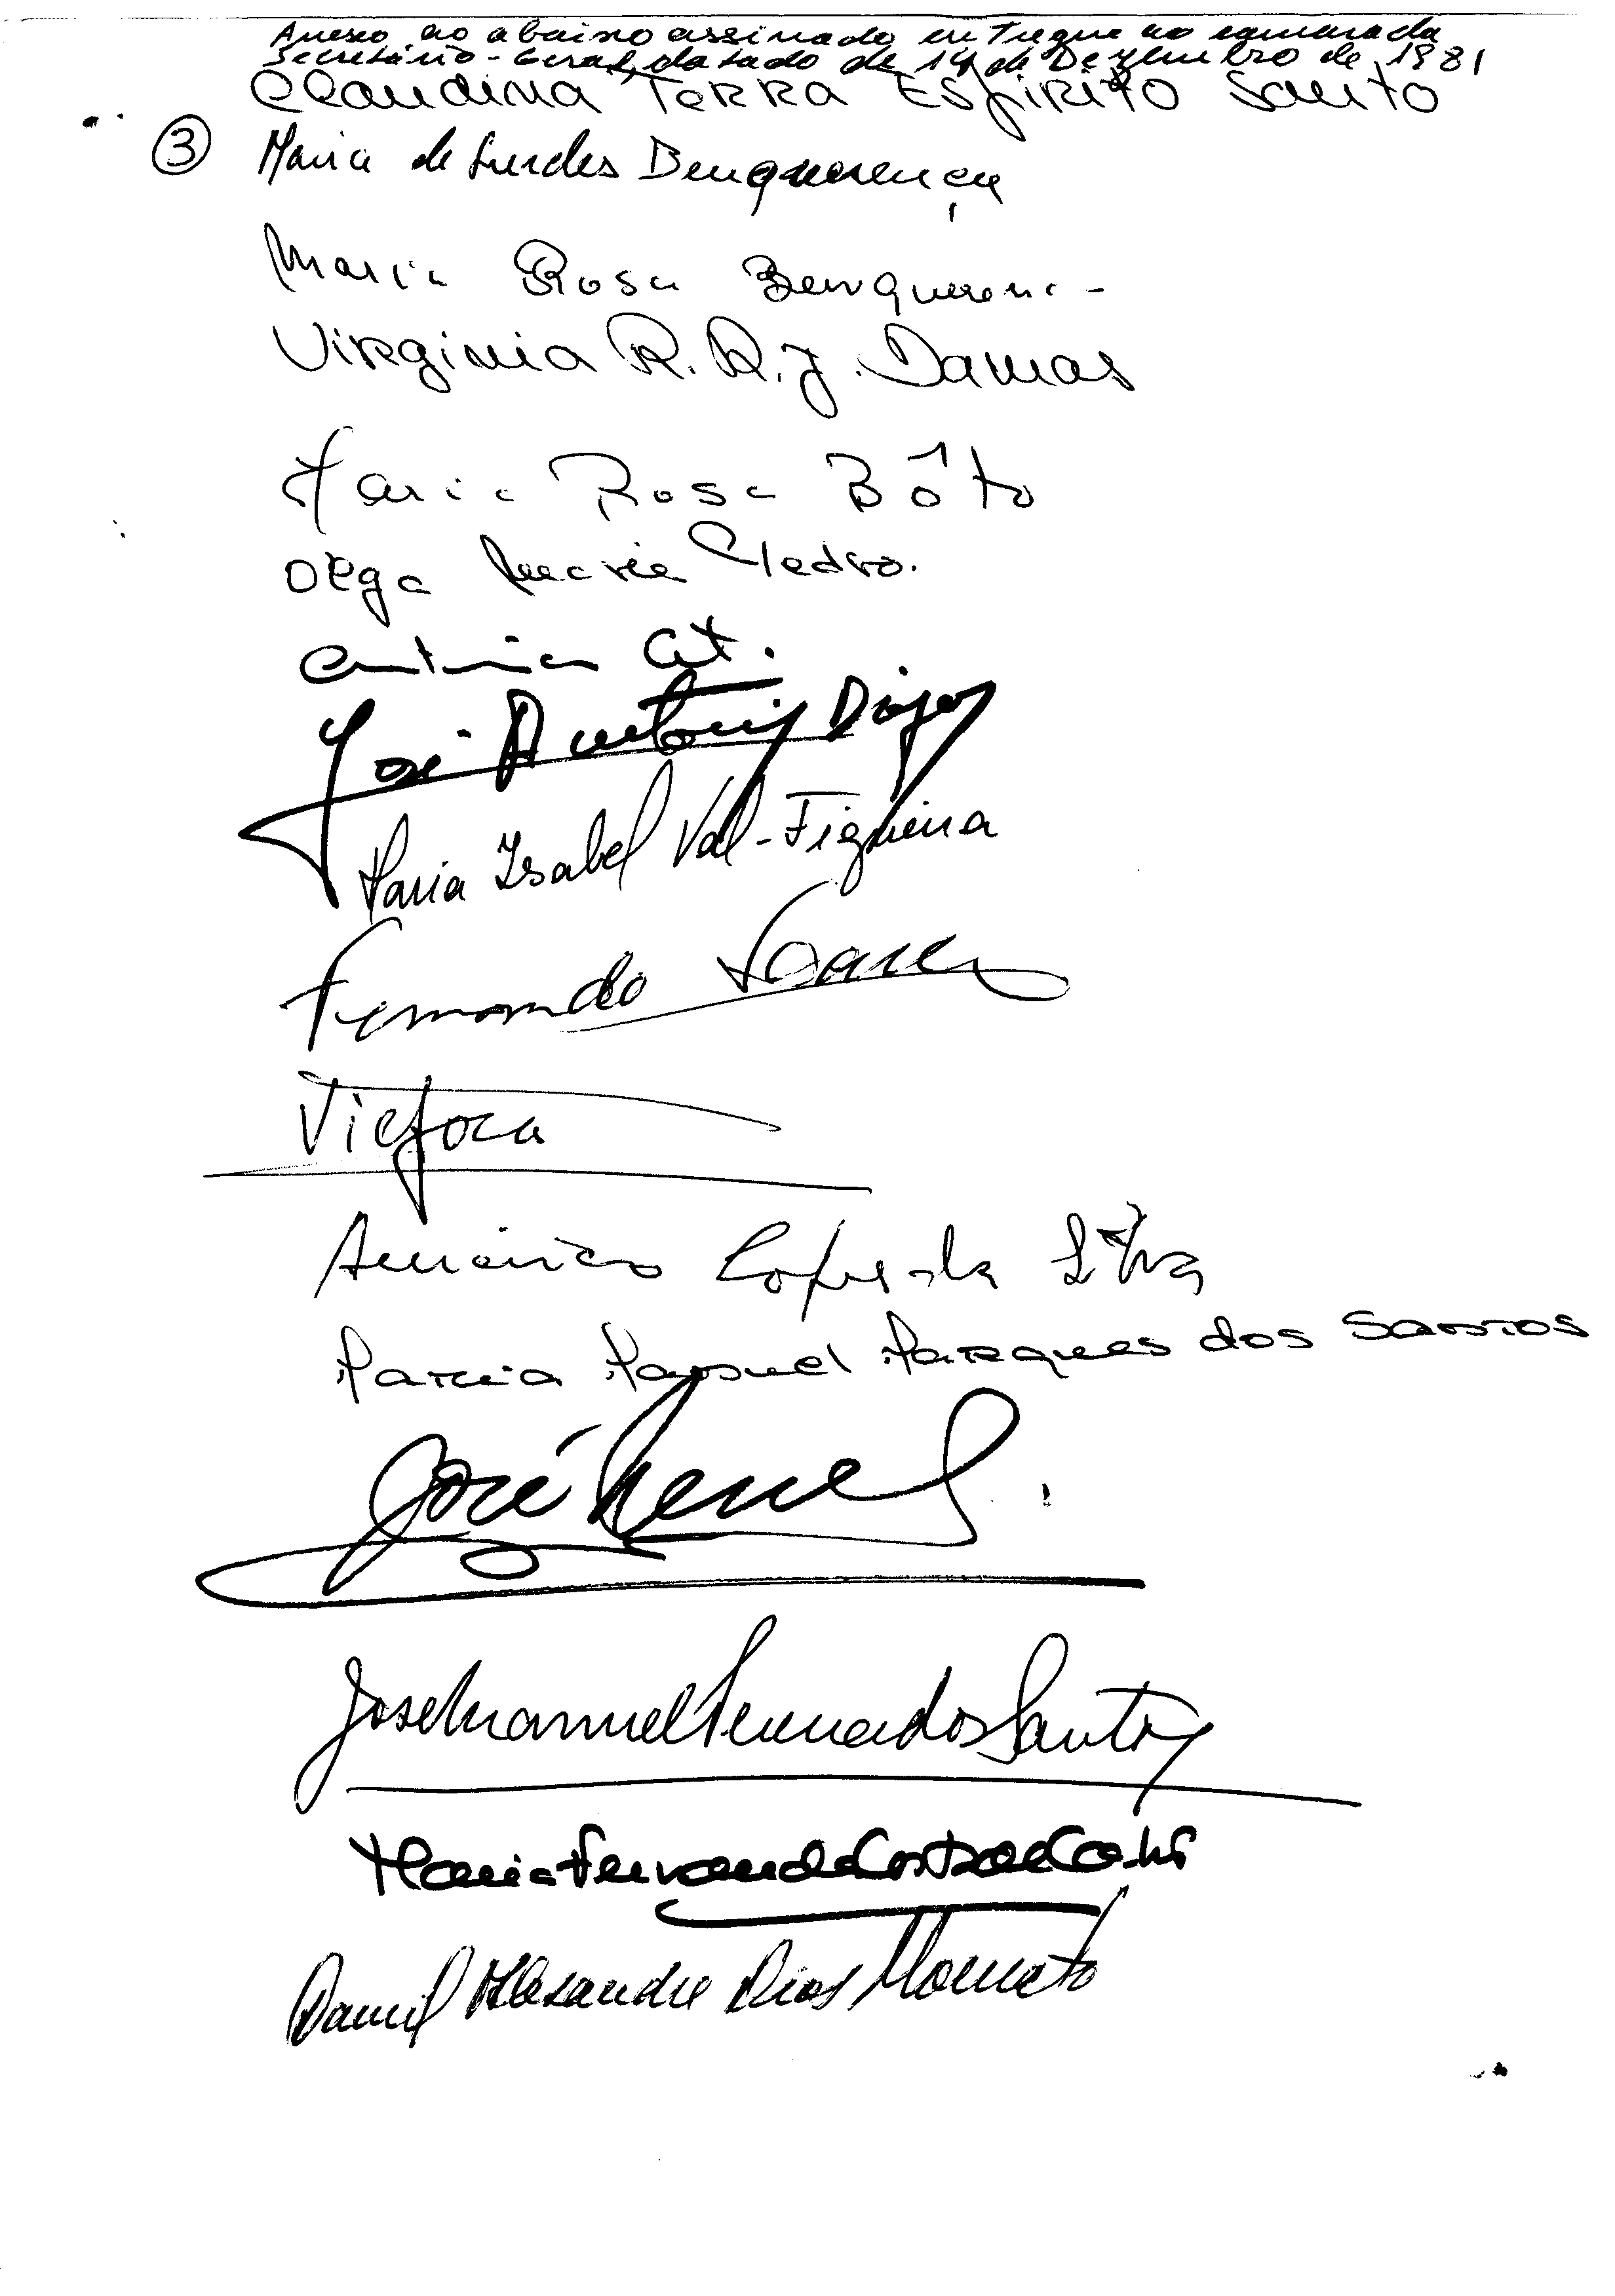 Anexo ao abaixo assinado entregue ao camarada
Secretário-Geral, datado de 14 de Dezembro de 1981
Claudina Terra Espirito Santo
③ Maria de Lurdes Benquerença
Maria Rosa Benquerenc-
Virginia R. R. J. Damas
Maria Rosa Bôto
Olga Maria Pedro.
José Antonio
Maria Isabel Val-Figueira
Fernando Soares
Américo Lopes da Silva
Maria Manuel Marques dos Santos
José
José Manuel dos Santos
Maria Fernanda Costa
Daniel Alexandre Dias